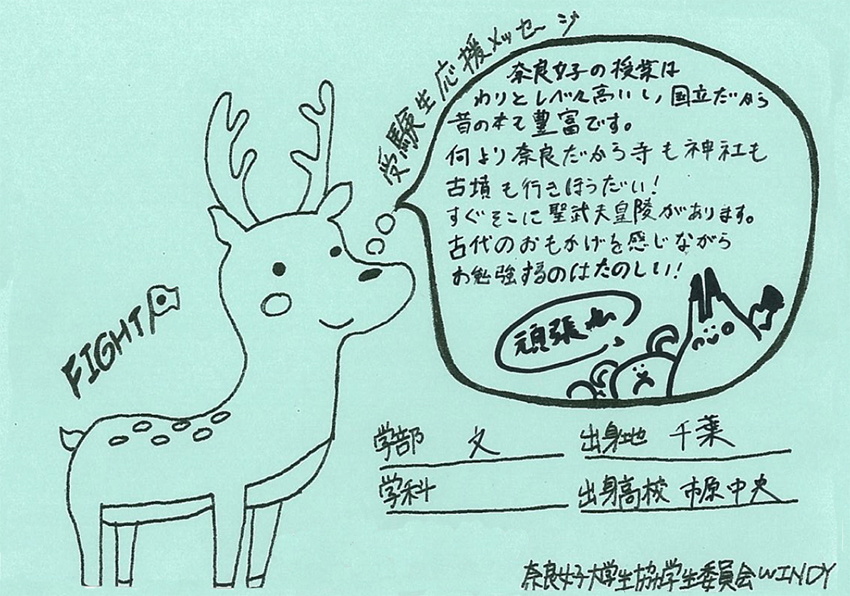 受験生応援メッセージ
奈良女子の授業は
わりとレベル高いし、国立だから
昔の本も豊富です。
何より奈良だから寺も神社も
古墳も行きほうだい!
すぐそこに聖武天皇陵があります。
古代のおもかげを感じながら
お勉強するのはたのしい!
頑張れ
FIGHT
学部 文 出身地 千葉
学科 出身高校 市原中央
奈良女子大学生協学生委員会WINDY